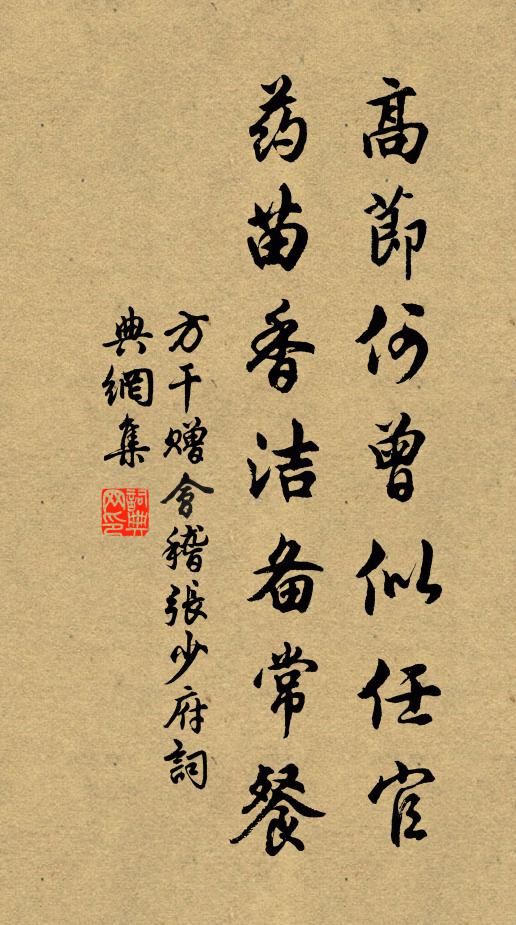 高節何曾似任官
药苗香洁备常餐
方干赠會稽張少府詞
典網集
詞典網印